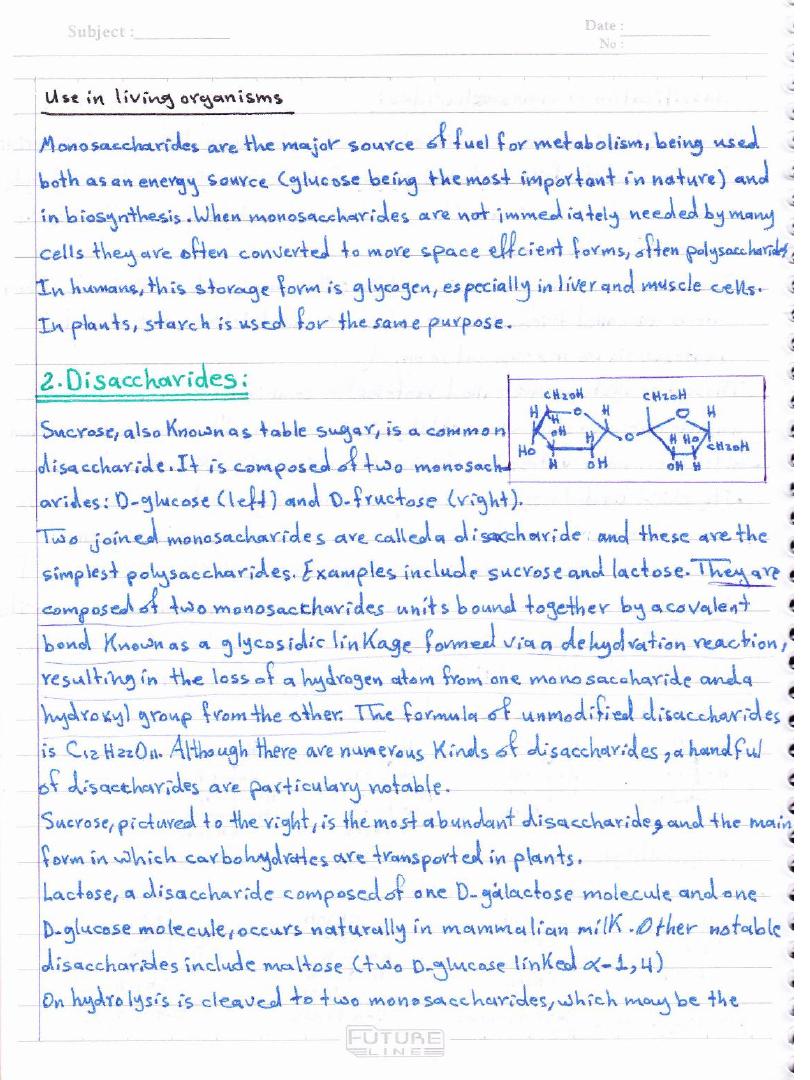 Subject :
Date :
No :
Use in living organisms
Monosaccharides are the major source of fuel for metabolism, being used
both as an energy source (glucose being the most important in nature) and
in biosynthesis. When monosaccharides are not immediately needed by many
cells they are often converted to more space effcient forms, often polysaccharides
In humans, this storage form is glycogen, especially in liver and muscle cells.
In plants, starch is used for the same purpose.
2. Disaccharides:
CH2OH
CH2OH
H
O
H
O
H
H
OH
H
O
H
Ho
CH2OH
Ho
H
OH
OH
H
Sucrose, also Known as table sugar, is a common
disaccharide. It is composed of two monosacch
arides: D-glucose (left) and D-fructose (right).
Two joined monosacharides are called a disaccharide and these are the
simplest polysaccharides. Examples include sucrose and lactose. They are
composed of two monosaccharides units bound together by a covalent
bond Known as a glycosidic linKage formed via a dehydration reaction,
resulting in the loss of a hydrogen atom from one monosaccharide and a
hydroxyl group from the other. The formula of unmodified disaccharides
is C12H22O11. Although there are numerous Kinds of disaccharides, a handful
of disaccharides are particulary notable.
Sucrose, pictured to the right, is the most abundant disaccharide, and the main
form in which carbohydrates are transported in plants.
Lactose, a disaccharide composed of one D-galactose molecule and one
D-glucose molecule, occurs naturally in mammalian milk. Other notable
disaccharides include maltose (two D-glucose linked α-1,4)
On hydrolysis is cleaved to two monosaccharides, which may be the
FUTURE
LINE